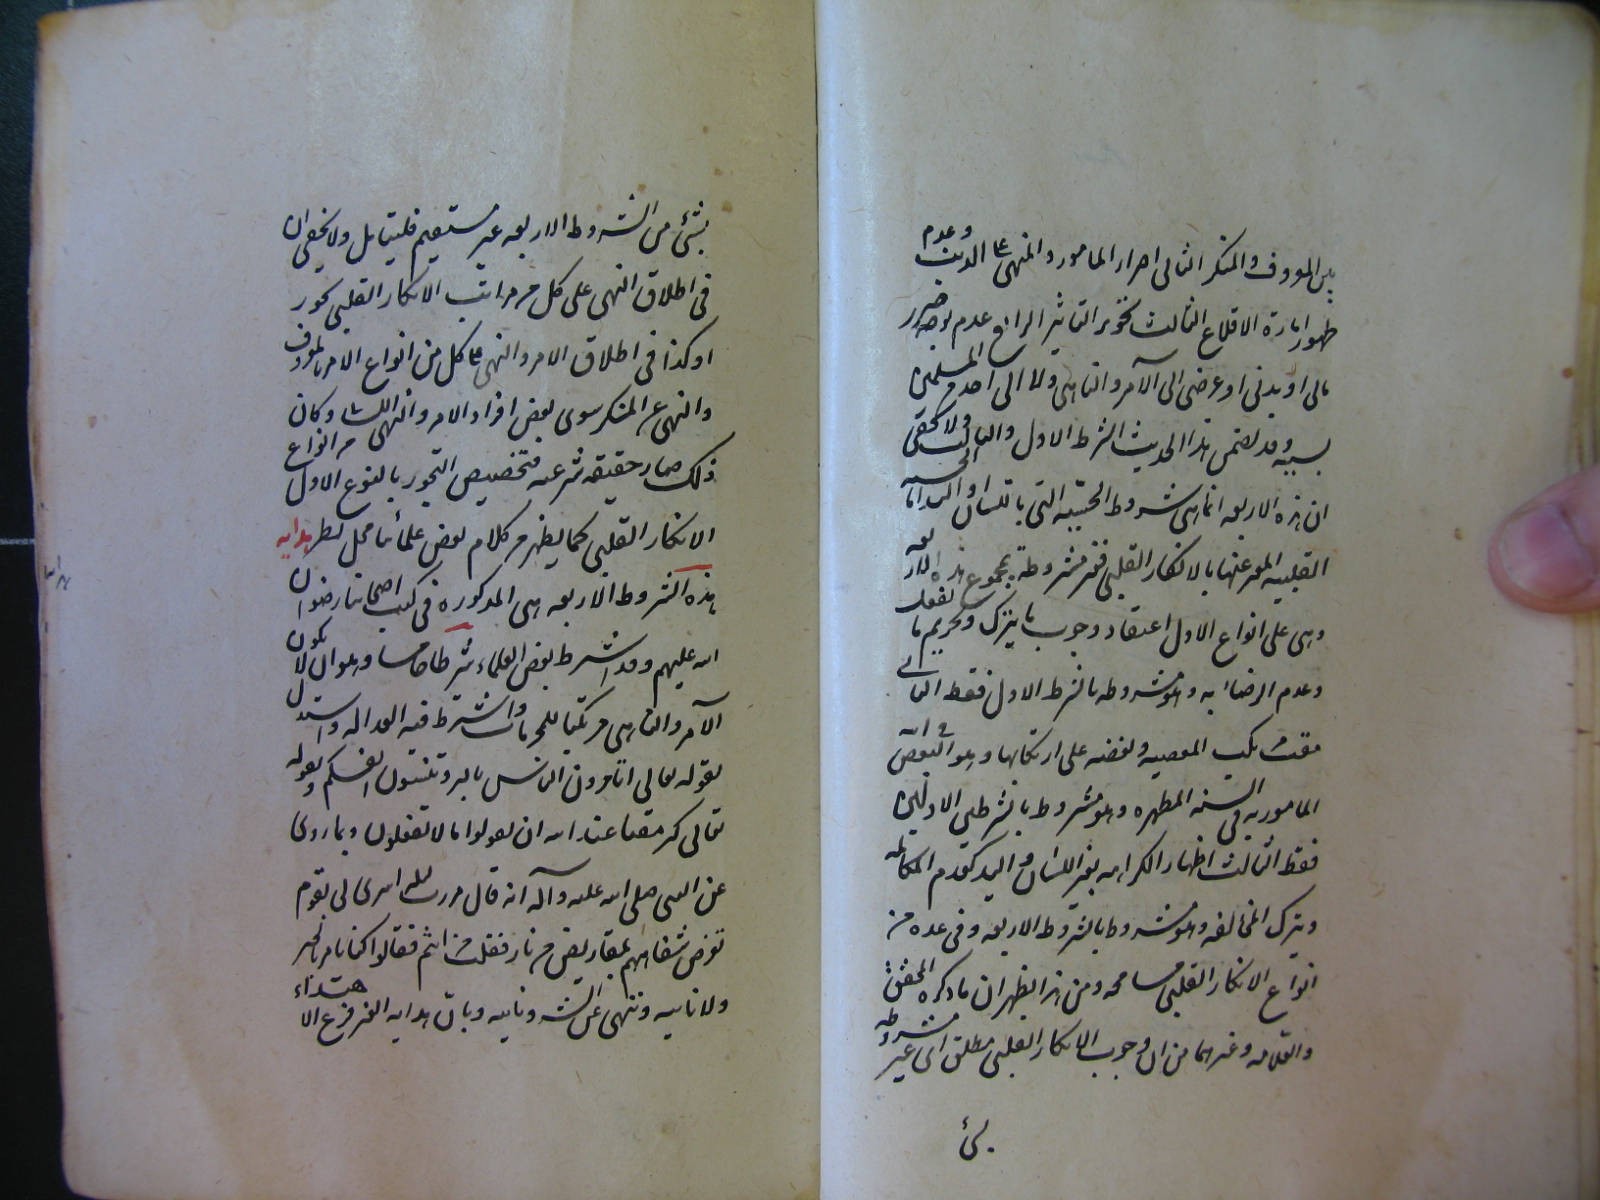 بين المعروف والمنكر الثانى اصرار المامور والمنهى على الذنب وعدم
ظهور امارة الاقلاع الثالث تجويز التاثير الرابع عدم توجه ضرر
مالى او بدنى او عرضى الى الآمر والناهى ولا الى احد من المسلمين
بسببه وقد تضمن هذا الحديث الشرط الاول والثالث ولا يخفى
ان هذه الاربعه انما هى شروط الحسبه التى باللسان او اليد اما الحسبه
القلبيه المعبر عنها بالانكار القلبى فغير مشروطة بمجموع هذه الاربعه
وهى على انواع الاول اعتقاد وجوب ما يترك وتحريم ما يفعل
وعدم الرضا به وهو مشروط بالشرط الاول فقط الثانى
مقت مرتكب المعصيه وبغضه على ارتكابها وهو البغض فى الله
المامور به فى السنه المطهره وهو مشروط بالشرطين الاولين
فقط الثالث اظهار الكراهه بغير اللسان واليد كعدم المكالمه
وترك المخالطه وهو مشروط بالشروط الاربعه وفى عده من
انواع الانكار القلبى مسامحه ومن هذا يظهر ان ما ذكره المحقق
والعلامه وغيرهما من ان وجوب الانكار القلبى مطلق اى غير مشروط
بشئ
بشئ من الشروط الاربعه غير مستقيم فليتامل ولا يخفى ان
فى اطلاق النهى على كل من مراتب الانكار القلبى تجوز
او كذا فى اطلاق الامر والنهى على كل من انواع الامر بالمعروف
والنهى عن المنكر سوى بعض افراد الامر والنهى وكان
ذلك صار حقيقه شرعيه فتخصيص التجوز بالنوع الاول من انواع
الانكار القلبى كما يظهر من كلام بعض علمائنا محل نظر هدايه
هذه الشروط الاربعه هى المذكوره فى كتب اصحابنا رضوان
الله عليهم وقد اشترط بعض العلماء شرطا خامسا وهو ان لا يكون
الآمر والناهى مرتكبا للمحرمات واشترط فيه العداله واستدل
بقوله تعالى اتامرون الناس بالبر وتنسون انفسكم وبقوله
تعالى كبر مقتا عند الله ان تقولوا ما لا تفعلون وبما روى
عن النبى صلى الله عليه وآله انه قال مررت ليله اسرى بى بقوم
تقرض شفاههم بمقاريض من نار فقلت من انتم فقالوا كنا نامر بالخير
ولا ناتيه وننهى عن الشر وناتيه وبان هدايه الغير فرع الاهتداء